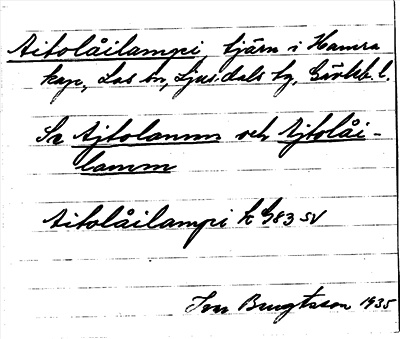 Aitolåilampi, tjärn i Hamra
kap., Los sn, Ljusdals tg, Gävleb. l.
Se Ajtolamm och Ajtolåi-
lamm
Aitolåilampi k G83 SV
Bengtsson 1935